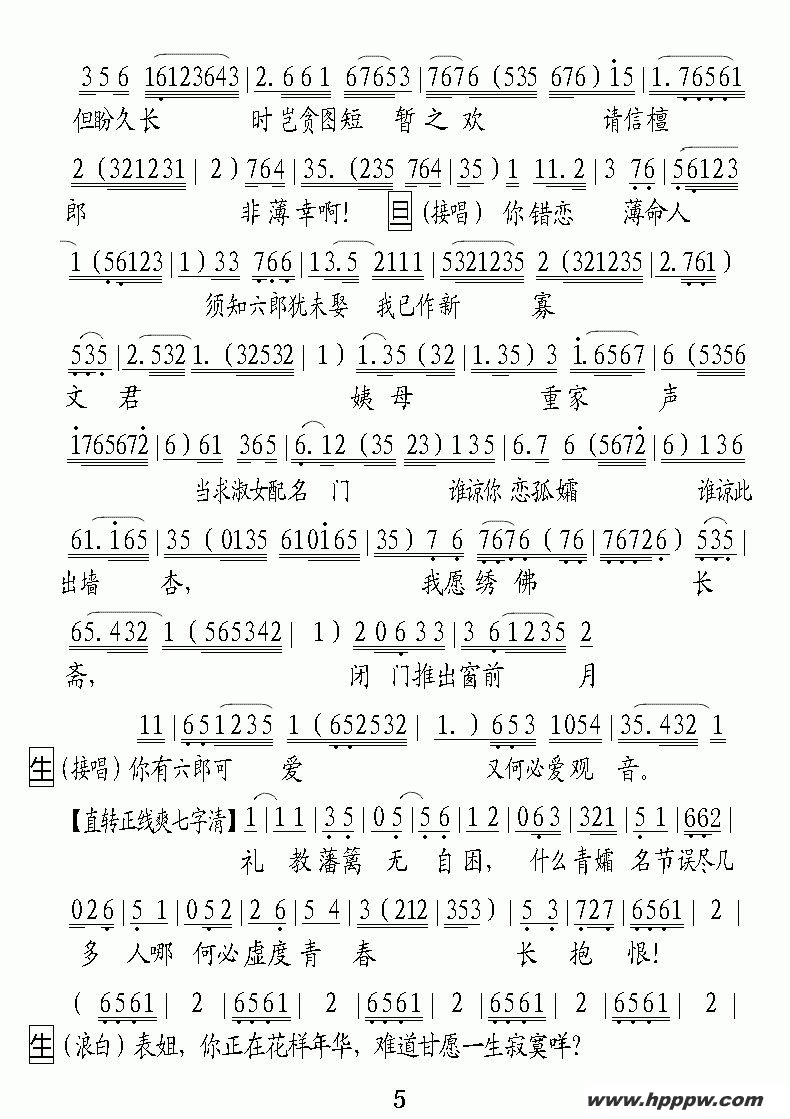 3 5 6 16123643 | 2. 6 6 1 67653 | 7676 (535 676) i5 | 1.76561
但盼久长 时岂贪图短 暂之欢 请信檀
2 (321231 | 2) 764 | 35. (235 764 | 35) 1 11.2 | 3 76 | 56123
郎 非薄幸啊! 旦 (接唱) 你错恋 薄命人
1 (56123 | 1) 33 766 | 13.5 2111 | 5321235 2 (321235 | 2.761)
须知六郎犹未娶 我已作新 寡
535 | 2.532 1. (32532 | 1) 1.35 (32 | 1.35) 3 i.6567 | 6 (5356
文 君 姨 母 重 家 声
i765672 | 6) 61 365 | 6.12 (35 23) 135 | 6.7 6 (5672 | 6) 136
当求淑女配名 门 谁谅你恋孤孀 谁谅此
61.i65 | 35 (0135 610i65 | 35) 7 6 7676 (76 | 76726) 535 |
出墙 杏, 我愿绣 佛 长
65.432 1 (565342 | 1) 2 0 6 3 3 | 3 61235 2
斋, 闭 门推出窗前 月
11 | 651235 1 (652532 | 1.) 653 1054 | 35.432 1
生 (接唱) 你有六郎可 爱 又何必爱观 音。
【直转正线爽七字清】 1 | 1 1 | 3 5 | 0 5 | 5 6 | 1 2 | 063 | 321 | 5 1 | 662 |
礼 教藩篱 无 自困, 什么青孀 名节误尽几
026 | 5 1 | 052 | 2 6 | 5 4 | 3 (212 | 353) | 5 3 | 727 | 6561 | 2 |
多 人哪 何必虚度青 春 长 抱 恨!
( 6561 | 2 | 6561 | 2 | 6561 | 2 | 6561 | 2 | 6561 | 2 |
生 (浪白) 表姐, 你正在花样年华, 难道甘愿一生寂寞咩?
5
www.hpppw.com